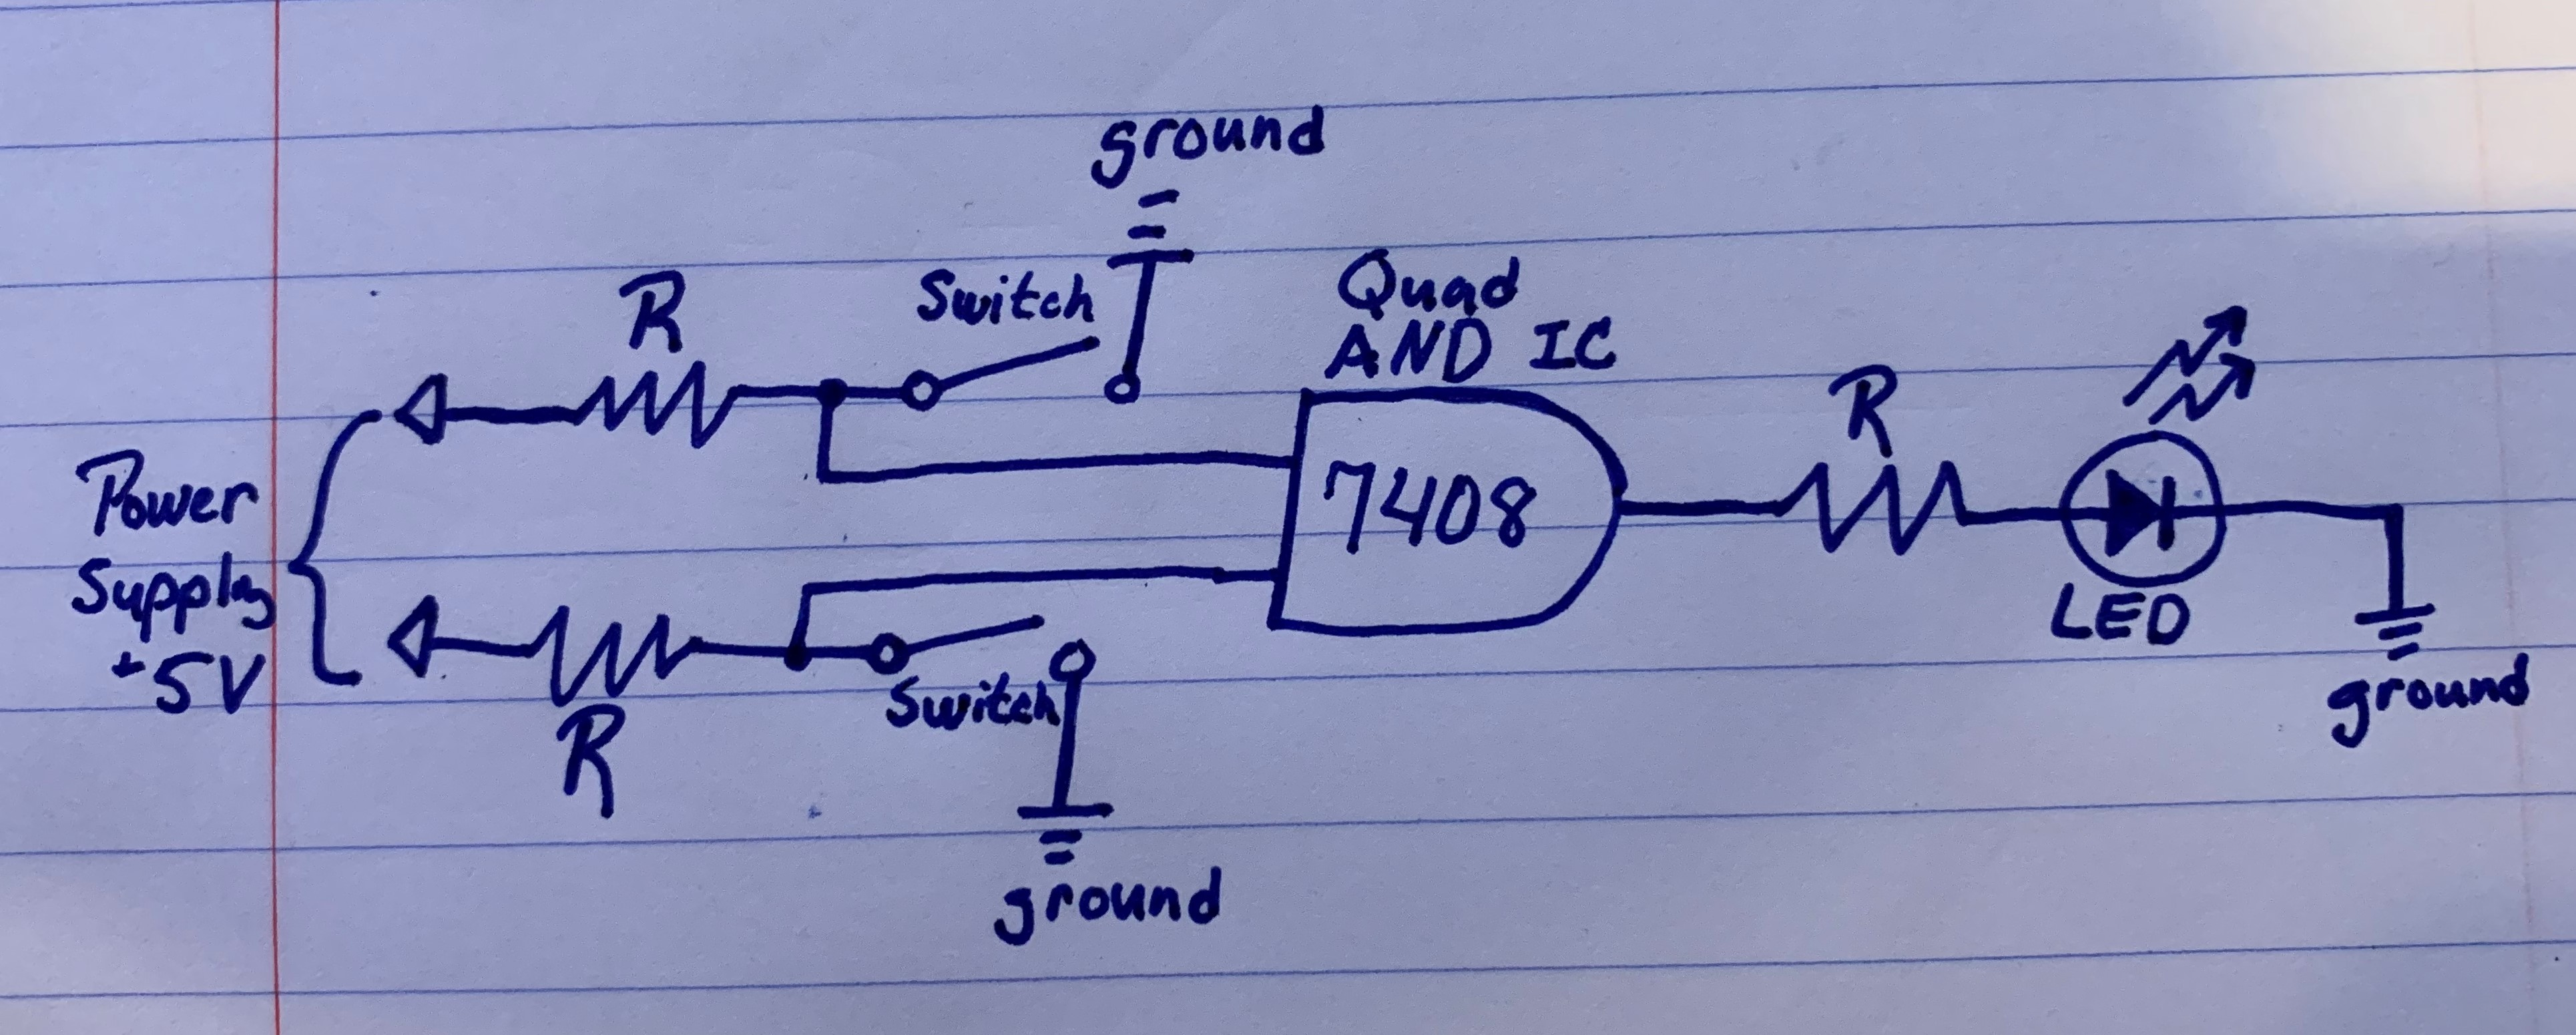 ground
R
Switch
Quad
AND IC
R
Power
Supply
+5V
7408
LED
Switch
R
ground
ground